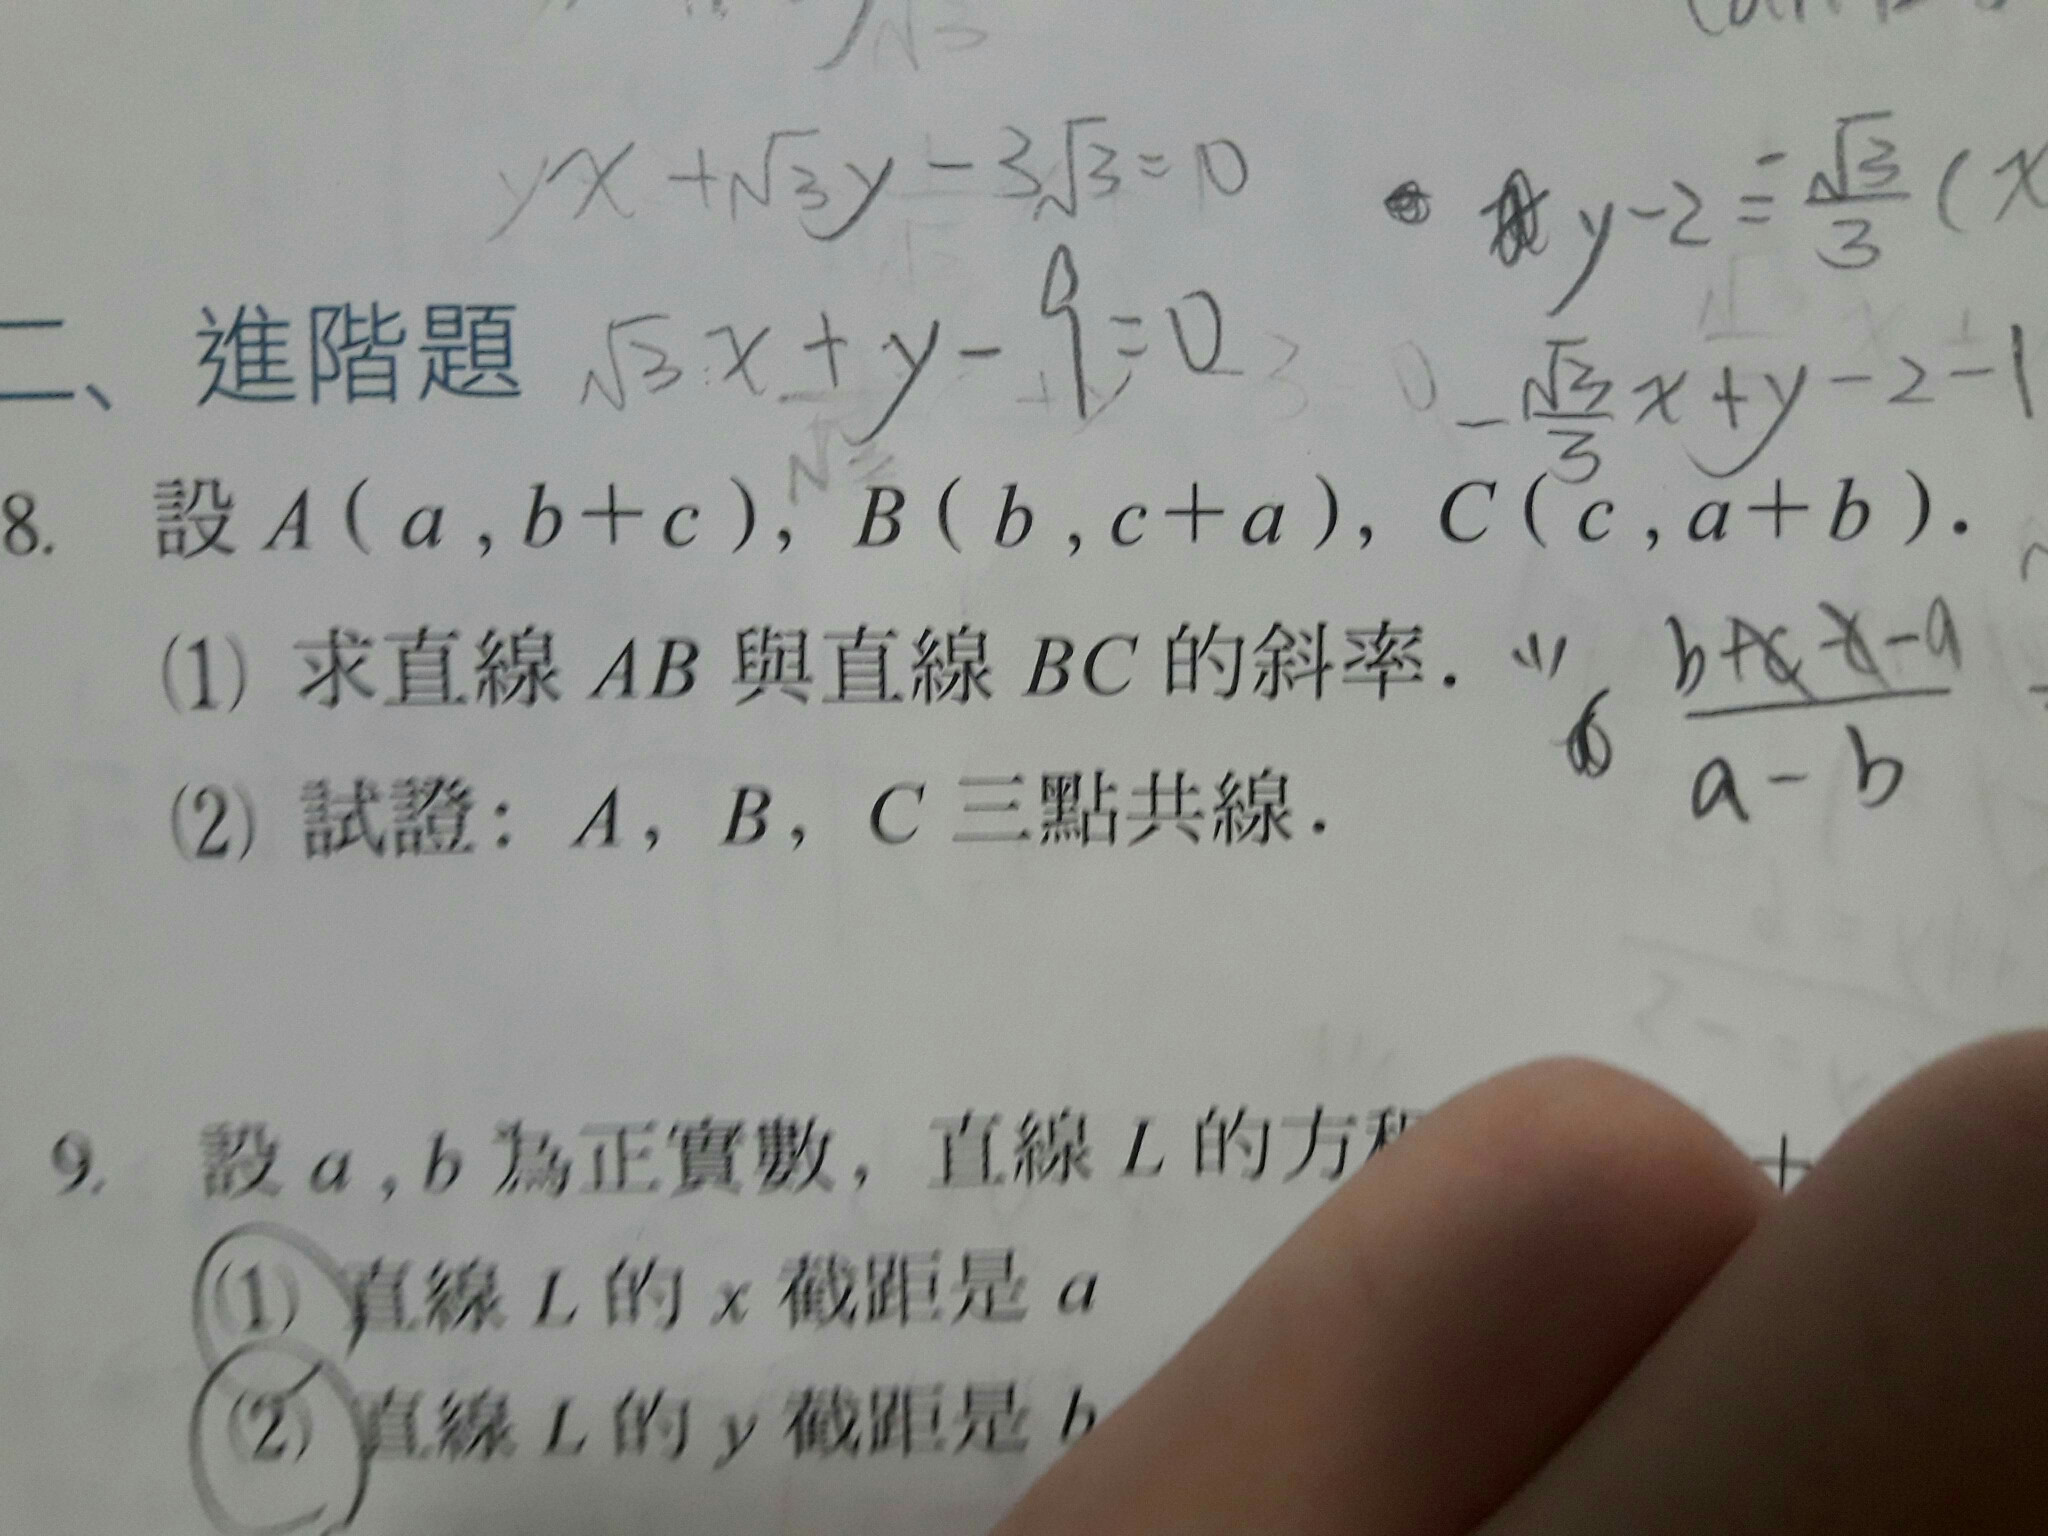 yx+√3y-3√3=0
y-2=-√3/3(x
二、進階題
√3x+y-9=0
-√3/3x+y-2-1
8. 設 A(a,b+c), B(b,c+a), C(c,a+b).
(1) 求直線 AB 與直線 BC 的斜率. (1) b+c-c-a/a-b
(2) 試證: A, B, C 三點共線.
9. 設 a,b 為正實數, 直線 L 的方 +
(1) 直線 L 的 x 截距是 a
(2) 直線 L 的 y 截距是 b